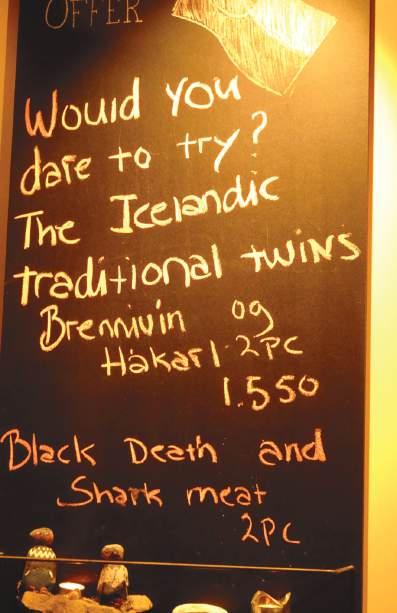 OFFER
Would you
dare to try?
The Icelandic
traditional twins
Brennivín og
Hákarl 2PC
1.550
Black Death and
Shark meat
2PC